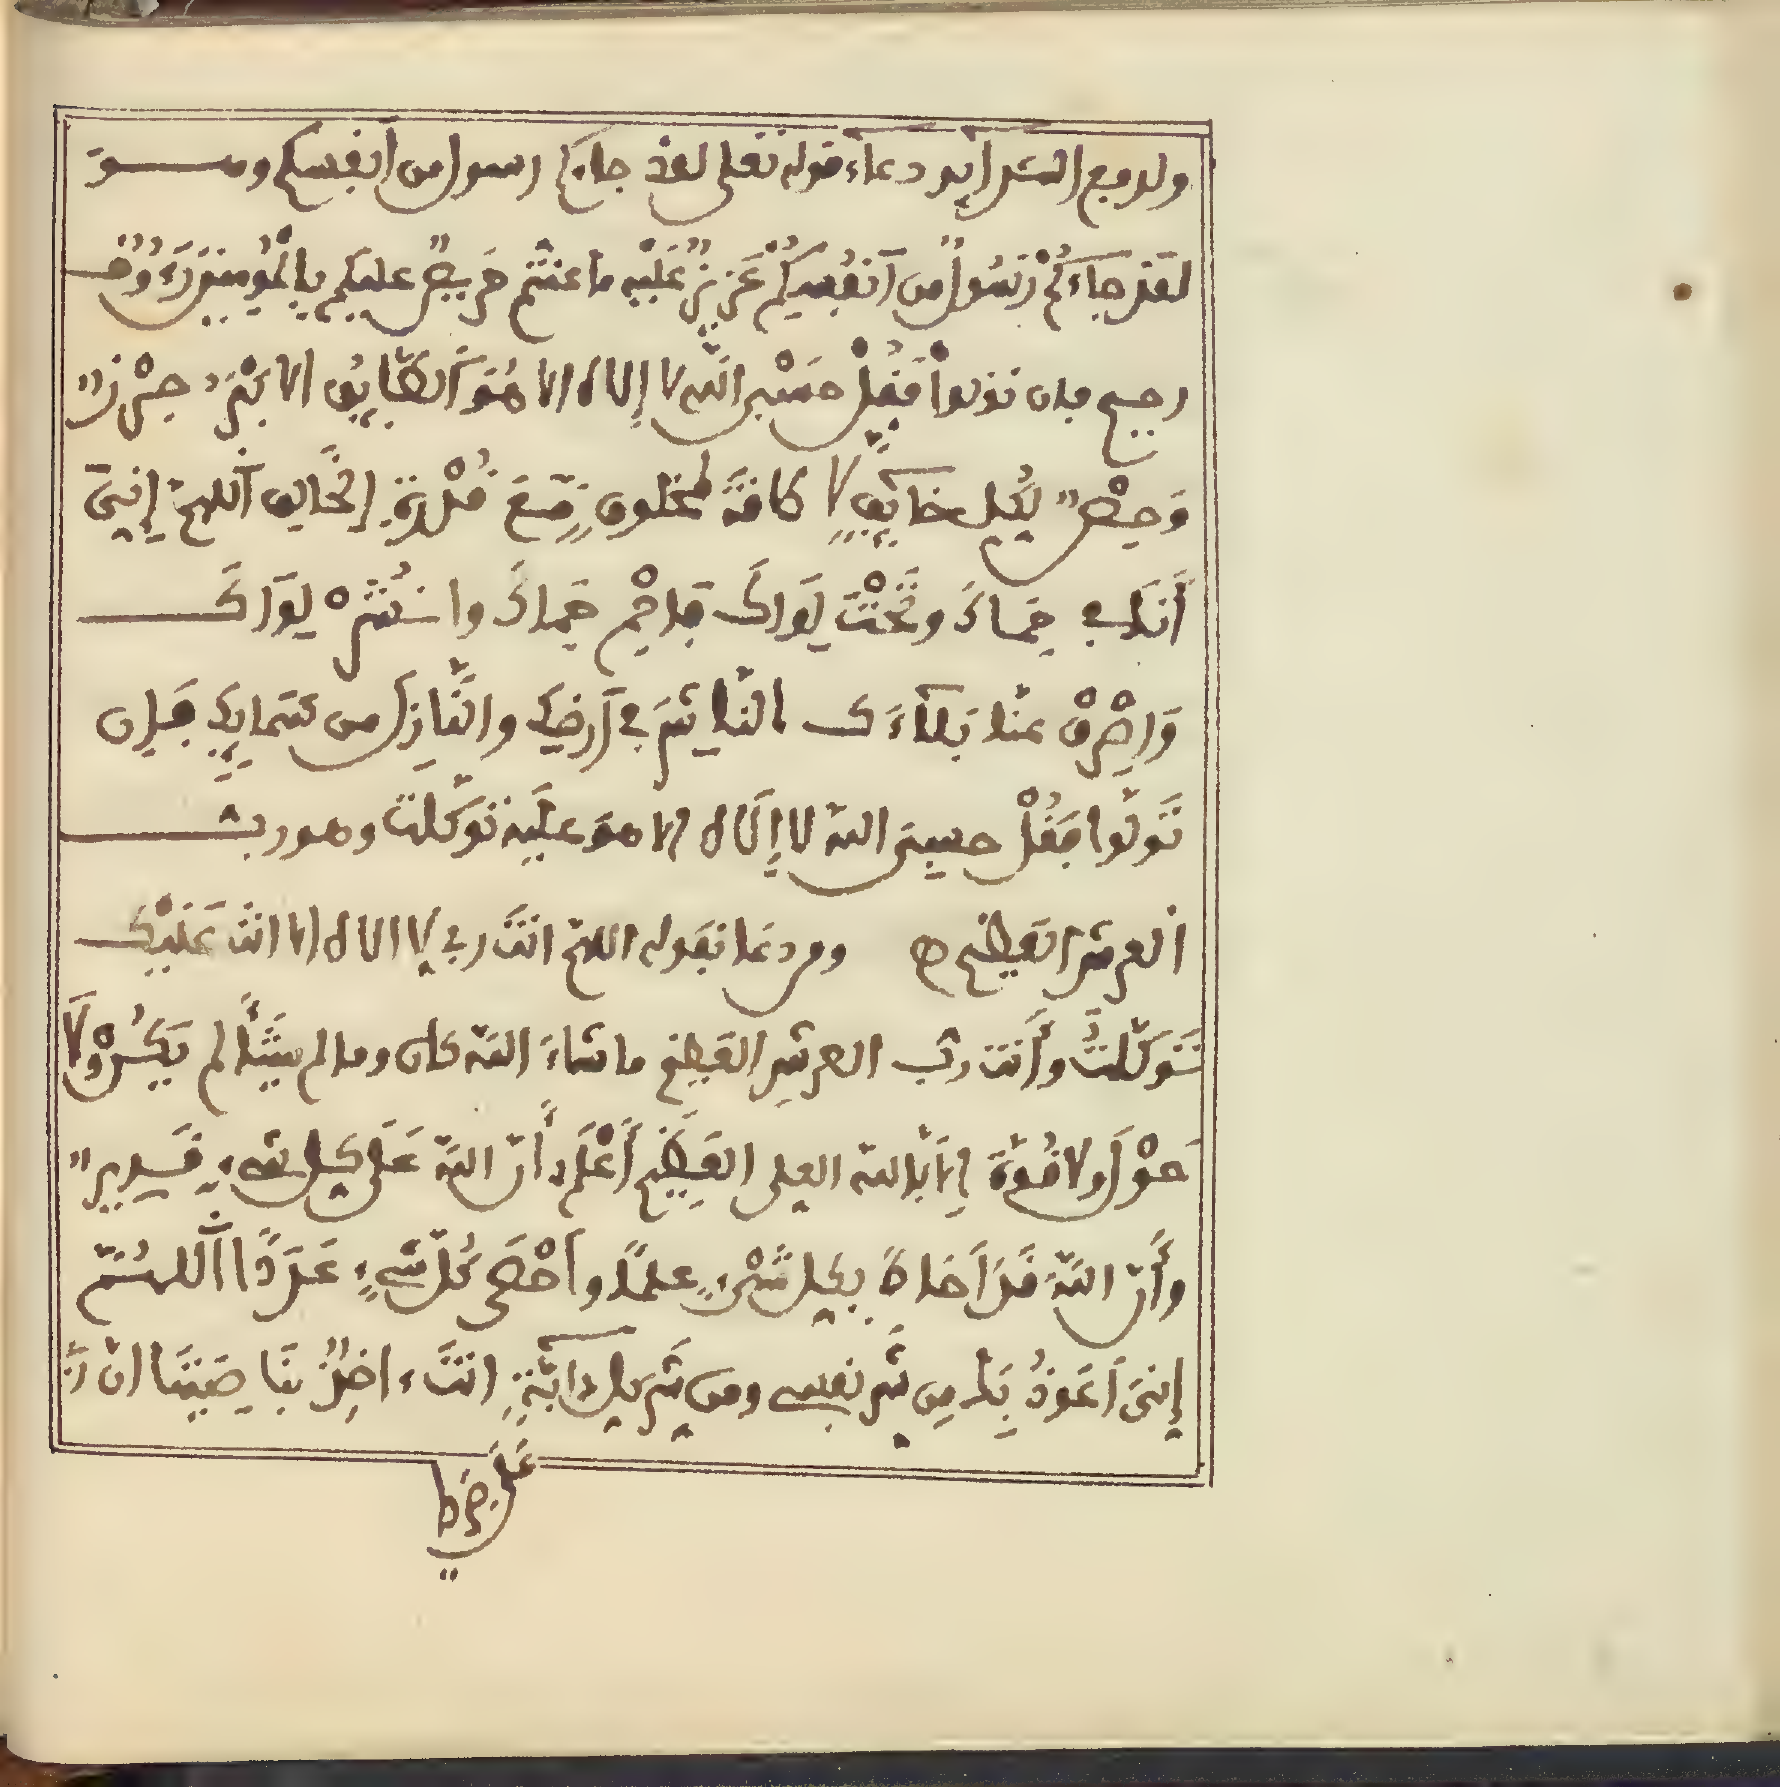 ولدفع الشدايد دعاء قوله تعلى لقد جاءكم رسول من أنفسكم وهو
لقد جاءكم رسول من أنفسكم عزيز عليه ما عنتم حريص عليكم بالمومنين رءوف
رحيم فان تولوا فقل حسبي الله لا إلاه الا هو
لكل خايف لا كافة لمخلوق مع قدرة الخالق اللهم إني
أنا في حماك وتحت لواك فاحم حماك وانشره لواك
واصرف عنا بلاءك النا شر في أرضك والنازل من سمايك فإن
تولوا فقل حسبي الله لا إلاه الا هو عليه توكلت وهو رب
العرش العظيم ومن دعا بقوله اللهم انت ربي لا الاه الا انت عليك
توكلت وأنت رب العرش العظيم ما شاء الله كان وما لم يشأ لم يكن ولا
حول ولا قوة إلا بالله العلي العظيم أعلم أن الله على كل شيء قدير
وأن الله قد أحاط بكل شيء علما وأحصى كل شيء عددا اللهم
إني أعوذ بك من شر نفسي ومن شر كل دابة انت ءاخذ بناصيتها ان ر
على صرط